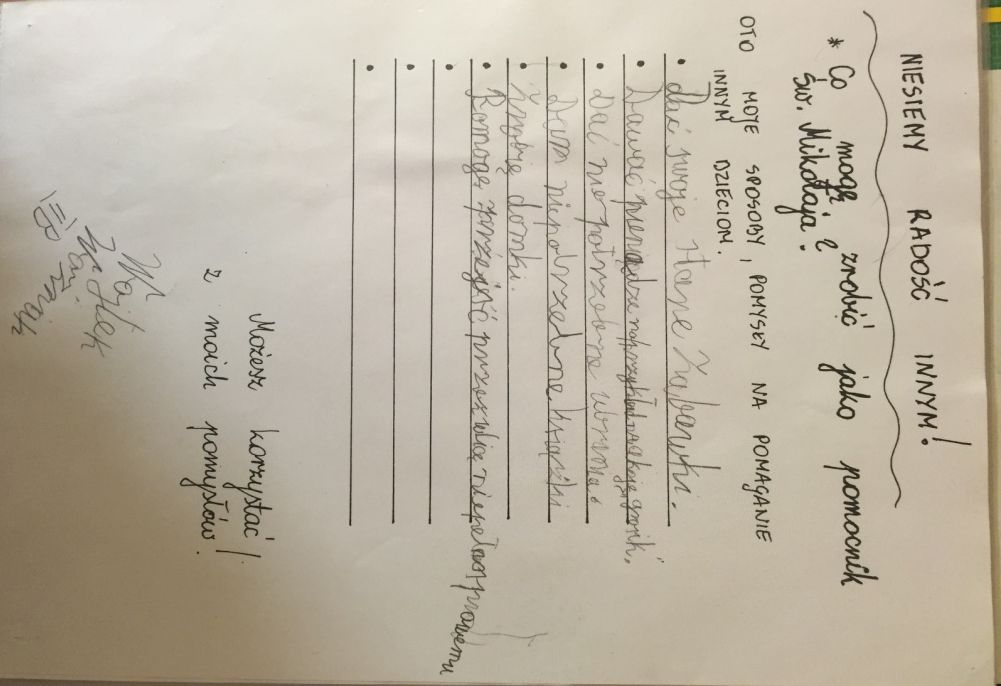 NIESIEMY RADOŚĆ INNYM!
* Co mogę zrobić jako pomocnik
Św. Mikołaja?
OTO MOJE SPOSOBY, POMYSŁY NA POMAGANIE
INNYM DZIECIOM.
• dać swoje stare Zabawki.
• Dawać pieniądze
• Dać nie potrzebne ubrania
• Dam niepotrzebne książki
• domki.
• Pomogę przejść przez ulicę niepełnosprawnemu
•
•
•
Możesz korzystać!
z moich pomysłów!